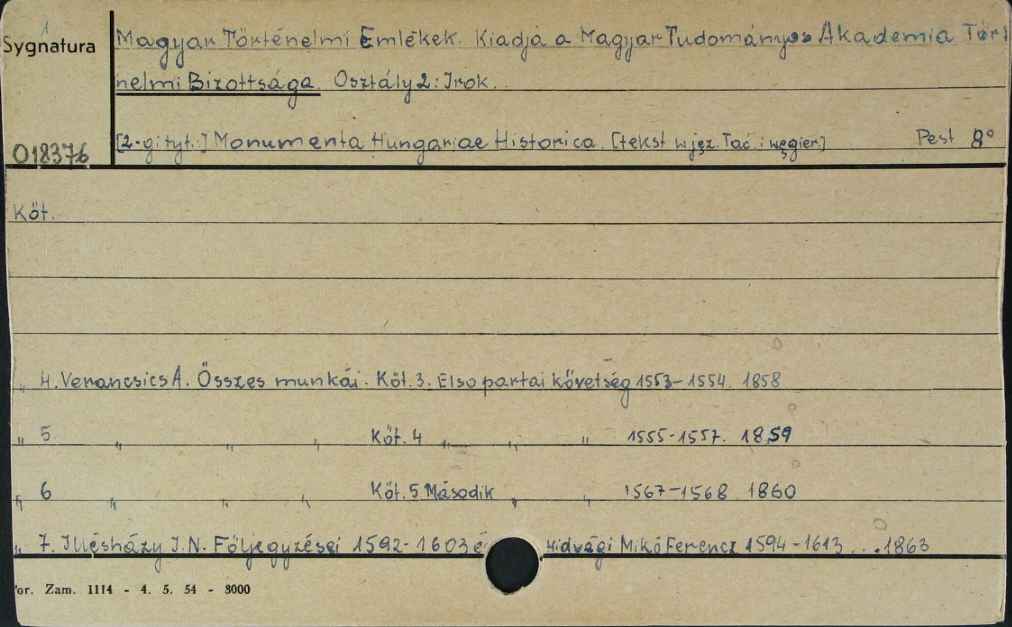 Sygnatura
Magyar Történelmi Emlékek. Kiadja a Magyar Tudományos Akademia Tört
nelmi Bizottsága. Osztály 2: Irok.
018376
[2-gi tyt.:] Monumenta Hungariae Historica. [tekst w jęz. łać i węgier.] Pest 8°
Köt.
" 4. Verancsics A. Összes munkái. Köt. 3. Elso partai követség 1553-1554. 1858
" 5 " " " Köt. 4 " " " 1555-1557. 1859
" 6 " " " Köt. 5 Második " " 1567-1568 1860
" 7. Illésházy I. N. Följegyzései 1592-1603 é Hidvégi Mikó Ferencz 1594-1613 ... 1863
or. Zam. 1114 - 4. 5. 54 - 8000